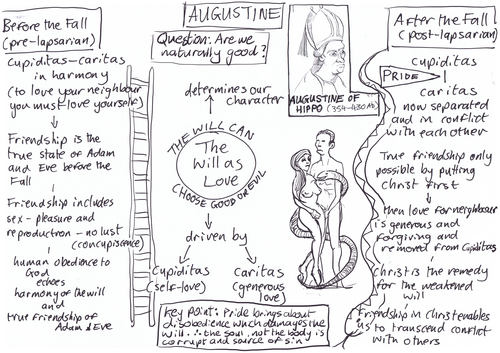 Before the Fall
(pre-lapsarian)
Cupiditas-caritas
in harmony
(to love your neighbour
you must love yourself)
Friendship is the
true state of Adam
and Eve before the
Fall
Friendship includes
sex - pleasure and
reproduction - no lust
(concupiscence)
human obedience to
God
echoes
harmony of the will
and
true friendship of
Adam & Eve
AUGUSTINE
Question: Are we
naturally good?
determines our
character
THE WILL CAN
The
Will as
Love
CHOOSE GOOD OR EVIL
driven by
Cupiditas
(self-love)
Caritas
(generous
love)
Key point: Pride brings about
disobedience which damages the
will ∴ the soul, not the body is
corrupt and source of sin
AUGUSTINE OF
HIPPO (354-430 AD)
After the Fall
(post-lapsarian)
cupiditas
PRIDE
caritas
now separated
and in conflict
with each other
True friendship only
possible by putting
Christ first
then love for neighbour
is generous and
forgiving and
removed from Cupiditas
Christ is the remedy
for the weakened
will
Friendship in Christ enables
us to transcend conflict
with others